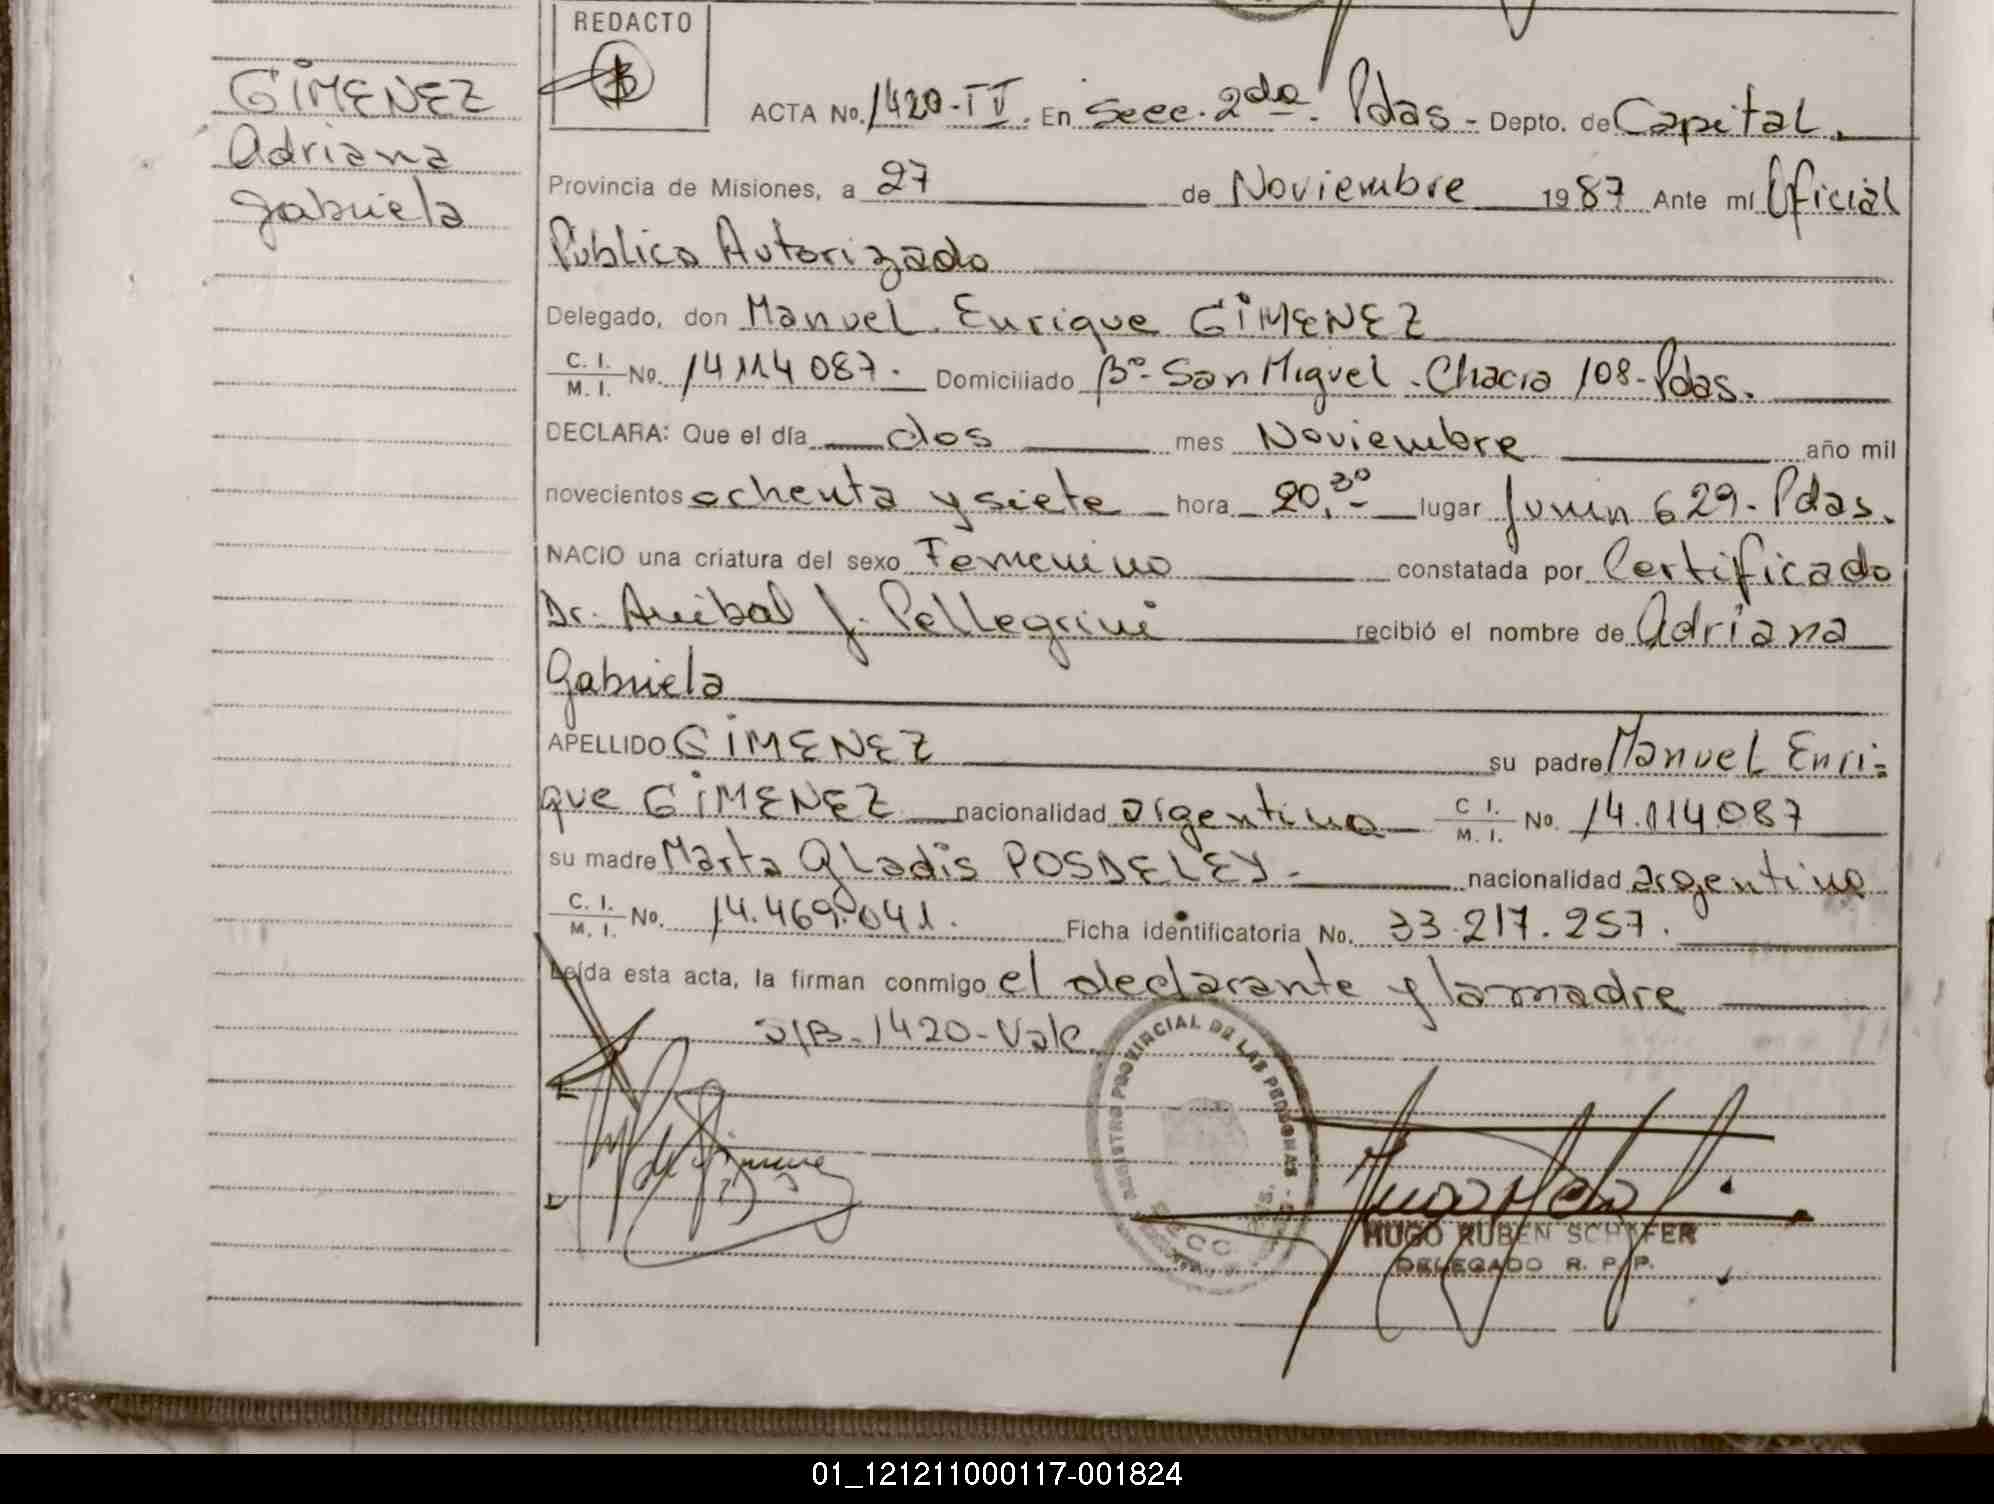 REDACTO
GIMENEZ
Adriana
Gabriela
ACTA No. 1420-IV. En Secc. 2da. Pdas - Depto. de Capital.
Provincia de Misiones, a 27 de Noviembre 1987 Ante mí Oficial
Público Autorizado
Delegado, don Manuel Enrique GIMENEZ
C. I.
M. I. No. 14.114.087. Domiciliado Bº San Miguel - Chacra 108 - Pdas.
DECLARA: Que el día dos mes Noviembre año mil
novecientos ochenta y siete hora 20,30 lugar Junín 629 - Pdas.
NACIO una criatura del sexo Femenino constatada por Certificado
Dr. Anibal J. Pellegrini recibió el nombre de Adriana
Gabriela
APELLIDO GIMENEZ su padre Manuel Enri-
que GIMENEZ nacionalidad argentina C. I.
M. I. No. 14.114.087
su madre Marta Gladis POSDELEY - nacionalidad argentina
C. I.
M. I. No. 14.469.041. Ficha identificatoria No. 33.217.257.
Leída esta acta, la firman conmigo el declarante y la madre
S/B-1420-Vale
REGISTRO PROVINCIAL DE LAS PERSONAS
HUGO RUBEN SCHAFER
DELEGADO R. P. P.
01_121211000117-001824